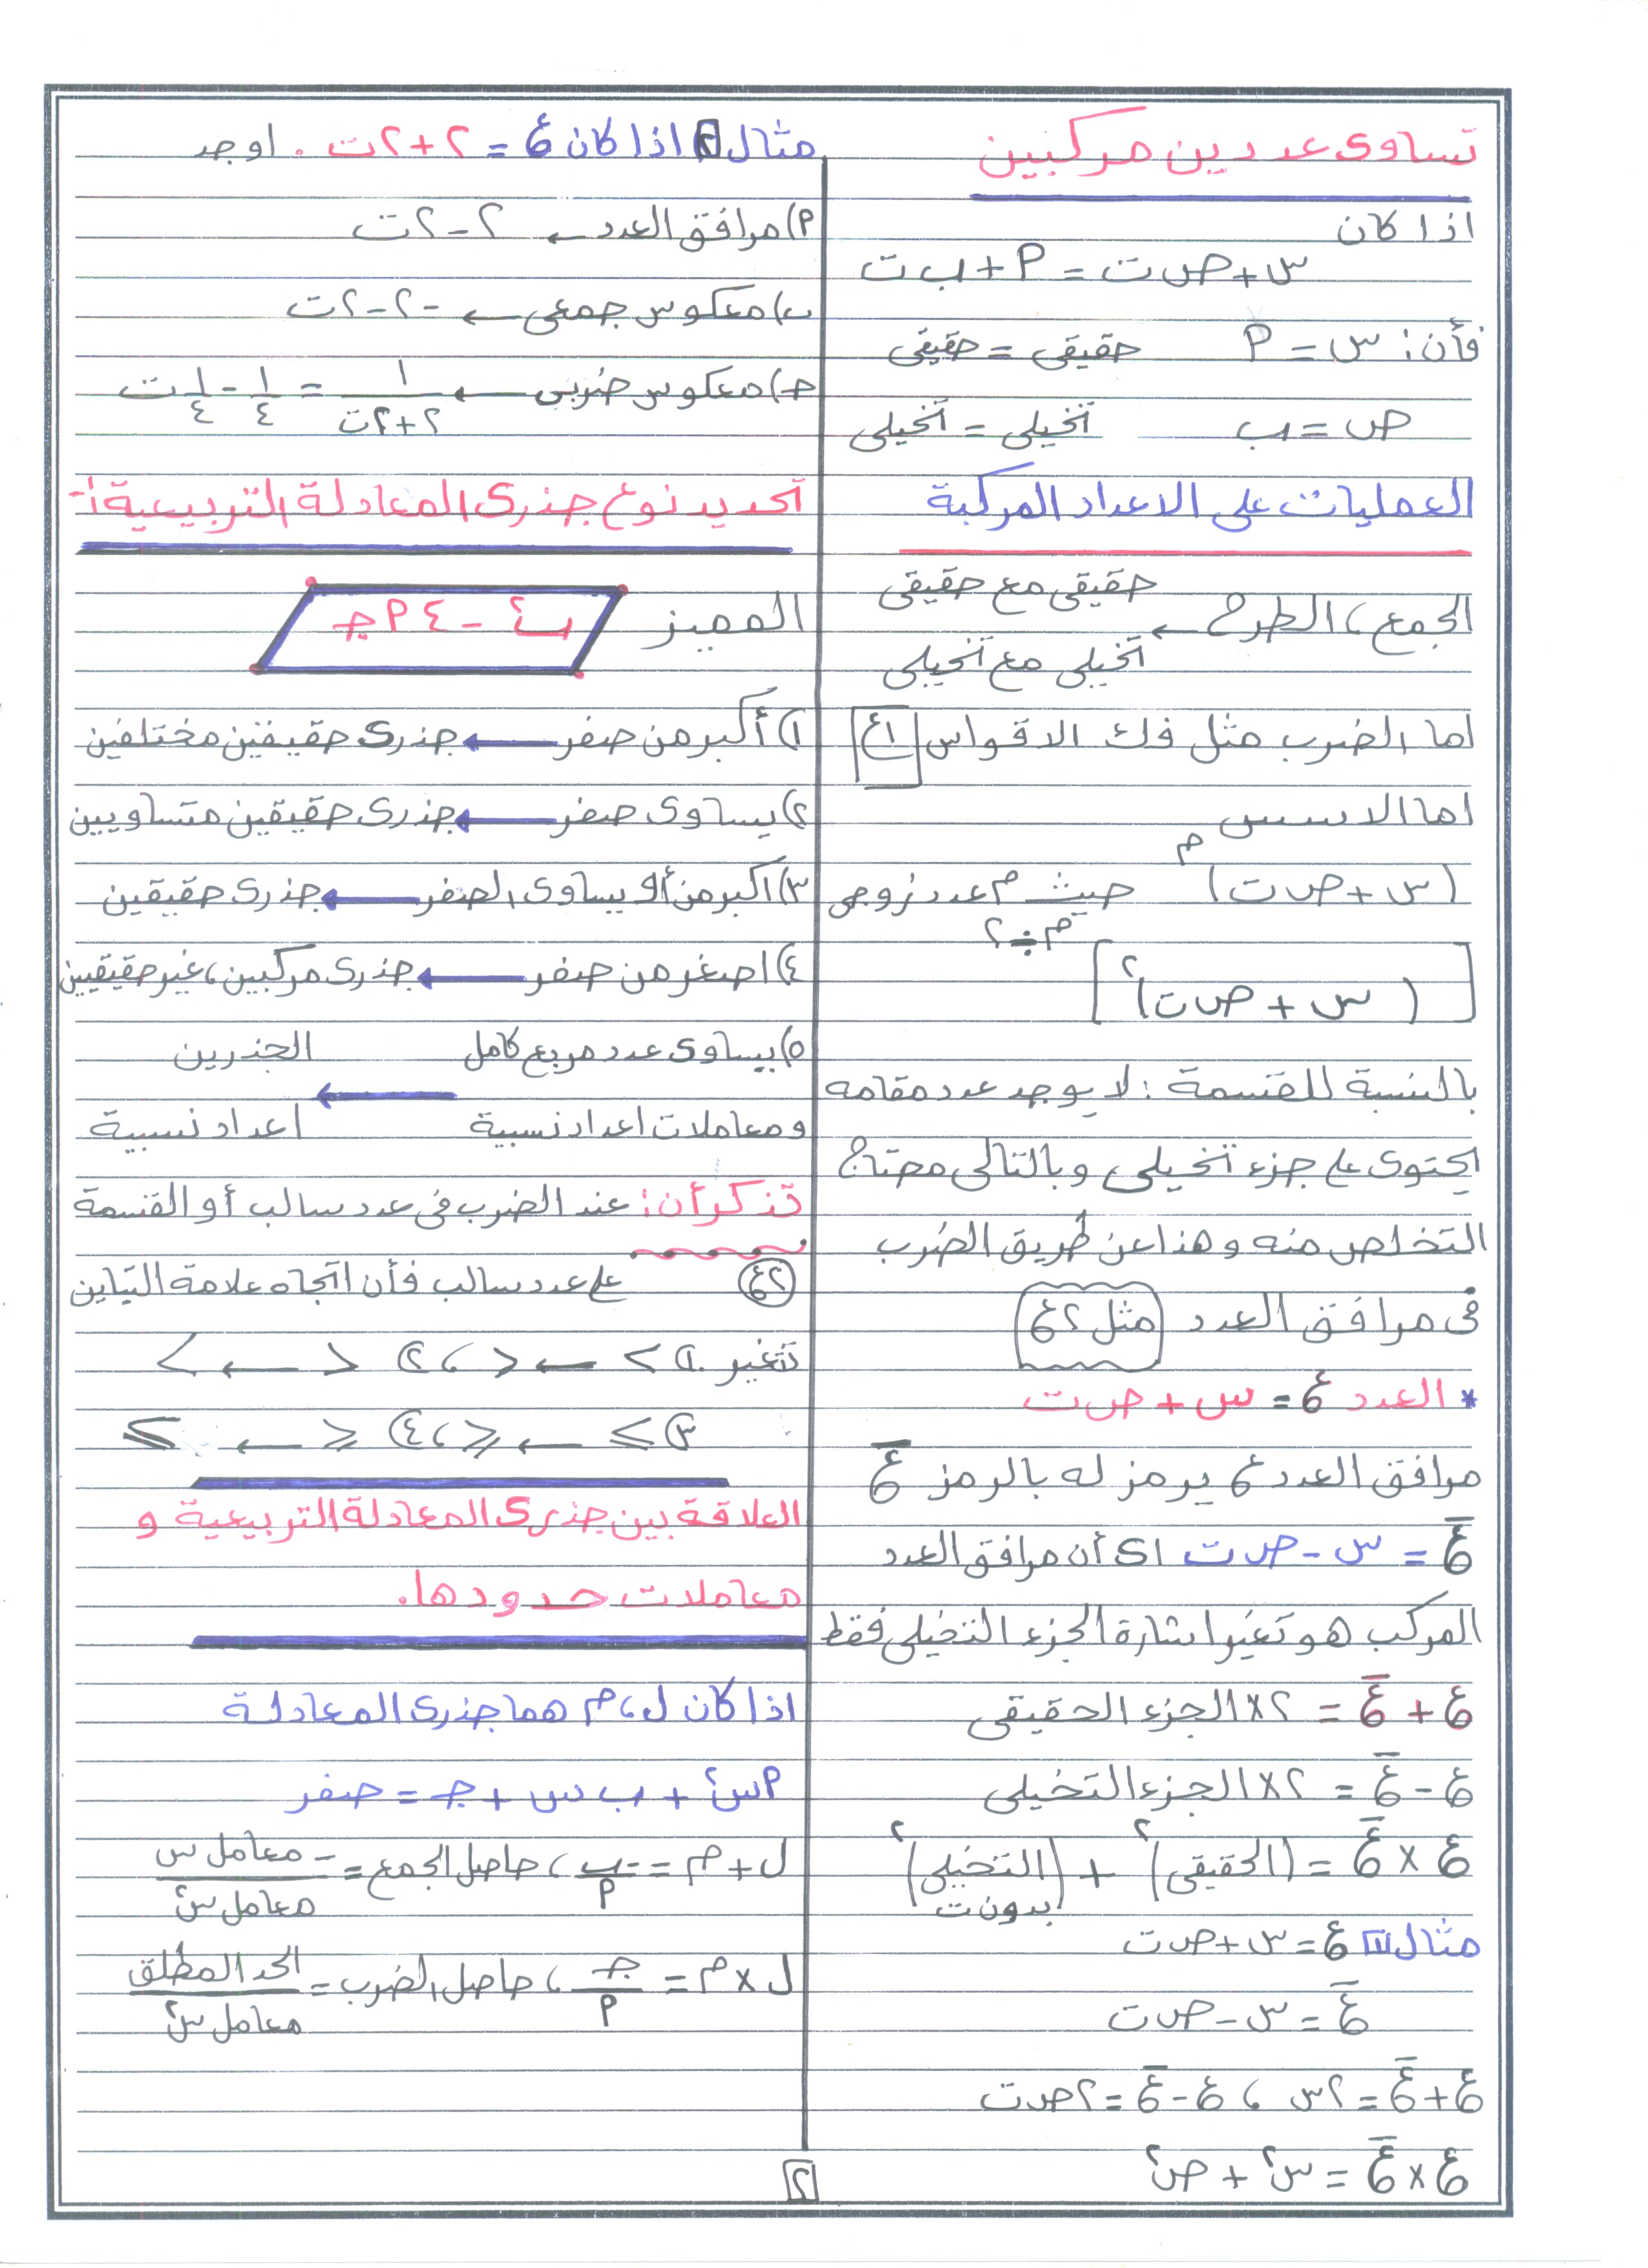 تساوى عددين مركبين
اذا كان
س + ص ت = م + ب ت
فأن : س = م حقيقى = حقيقى
ص = ب تخيلى = تخيلى
العمليات على الاعداد المركبة
حقيقى مع حقيقى
الجمع ، الطرح ←
تخيلى مع تخيلى
اما الضرب مثل فك الاقواس
اما الاسس
(س + ص ت)^م حيث م عدد زوجى
م ÷ ٢
[(س + ص ت)^٢]
بالنسبة للقسمة : لا يوجد عدد مقامه
يحتوى على جزء تخيلى وبالتالى محتاج
التخلص منه وهذا عن طريق الضرب
فى مرافق العدد (مثل ع٢)
* العدد ع = س + ص ت
مرافق العدد ع يرمز له بالرمز ع̄
ع̄ = س - ص ت اى أن مرافق العدد
المركب هو تغير اشارة الجزء التخيلى فقط
ع + ع̄ = ٢ × الجزء الحقيقى
ع - ع̄ = ٢ × الجزء التخيلى
ع × ع̄ = (الحقيقى)^٢ + (التخيلى)^٢
بدون ت
مثال ١ ع = س + ص ت
ع̄ = س - ص ت
ع + ع̄ = ٢س ، ع - ع̄ = ٢ص ت
ع × ع̄ = س^٢ + ص^٢
مثال ٢ اذا كان ع = ٢ + ٢ت . اوجد
م) مرافق العدد ← ٢ - ٢ت
ب) معكوس جمعى ← -٢ - ٢ت
ج) معكوس ضربى ← ١/(٢+٢ت) = ١/٤ - ١/٤ ت
تحديد نوع جذرى المعادلة التربيعية :-
المميز ب^٢ - ٤ م ج
١) أكبر من صفر ← جذرى حقيقين مختلفين
٢) يساوى صفر ← جذرى حقيقين متساويين
٣) اكبر من أو يساوى الصفر ← جذرى حقيقين
٤) اصغر من صفر ← جذرى مركبين ، غير حقيقيين
٥) يساوى عدد مربع كامل الجذرين
←
ومعاملات اعداد نسبية اعداد نسبية
تذكر أن : عند الضرب فى عدد سالب أو القسمة
على عدد سالب فأن اتجاه علامة التباين
تتغير . ١) > ← < ، ٢) < ← >
٣) ≥ ← ≤ ، ٤) ≤ ← ≥
العلاقة بين جذرى المعادلة التربيعية و
معاملات حدودها .
اذا كان ل ، م هما جذرى المعادلة
م س^٢ + ب س + ج = صفر
ل + م = -ب/م ، حاصل الجمع = -معامل س/معامل س^٢
ل × م = ج/م ، حاصل الضرب = الحد المطلق/معامل س^٢
٢